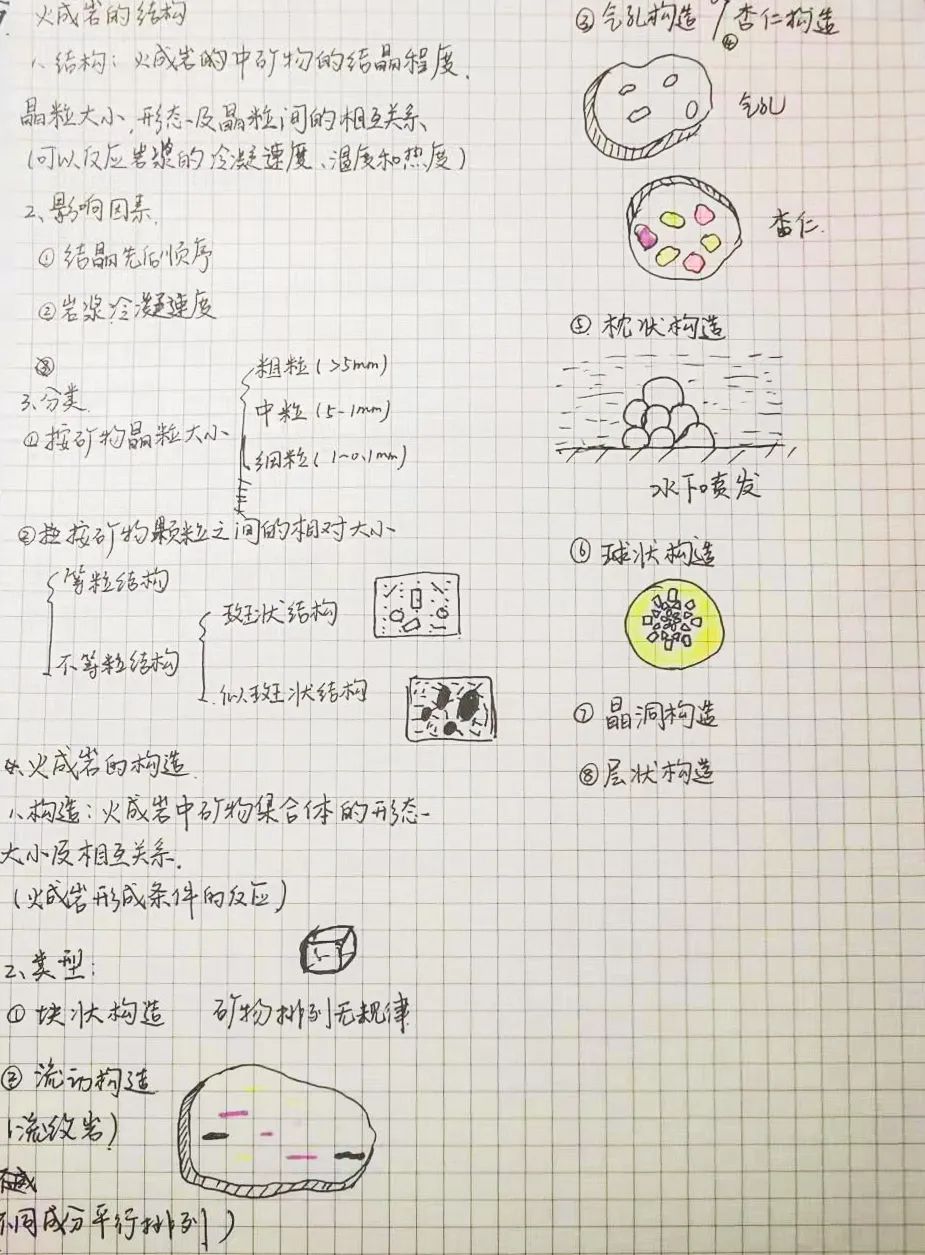 火成岩的结构
1、结构：火成岩的中矿物的结晶程度、
晶粒大小、形态及晶粒间的相互关系、
(可以反应岩浆的冷凝速度、温度和热度)
2、影响因素
① 结晶先后顺序
② 岩浆冷凝速度
3、分类
① 按矿物晶粒大小
粗粒(>5mm)
中粒(5-1mm)
细粒(1~0.1mm)
② 按矿物颗粒之间的相对大小
等粒结构
不等粒结构
斑状结构
似斑状结构
火成岩的构造
1、构造：火成岩中矿物集合体的形态
大小及相互关系.
(火成岩形成条件的反应)
2、类型：
① 块状构造 矿物排列无规律
② 流动构造
(流纹岩)
不同成分平行排列)
③ 气孔构造 / ④ 杏仁构造
气孔
杏仁
⑤ 枕状构造
水下喷发
⑥ 球状构造
⑦ 晶洞构造
⑧ 层状构造